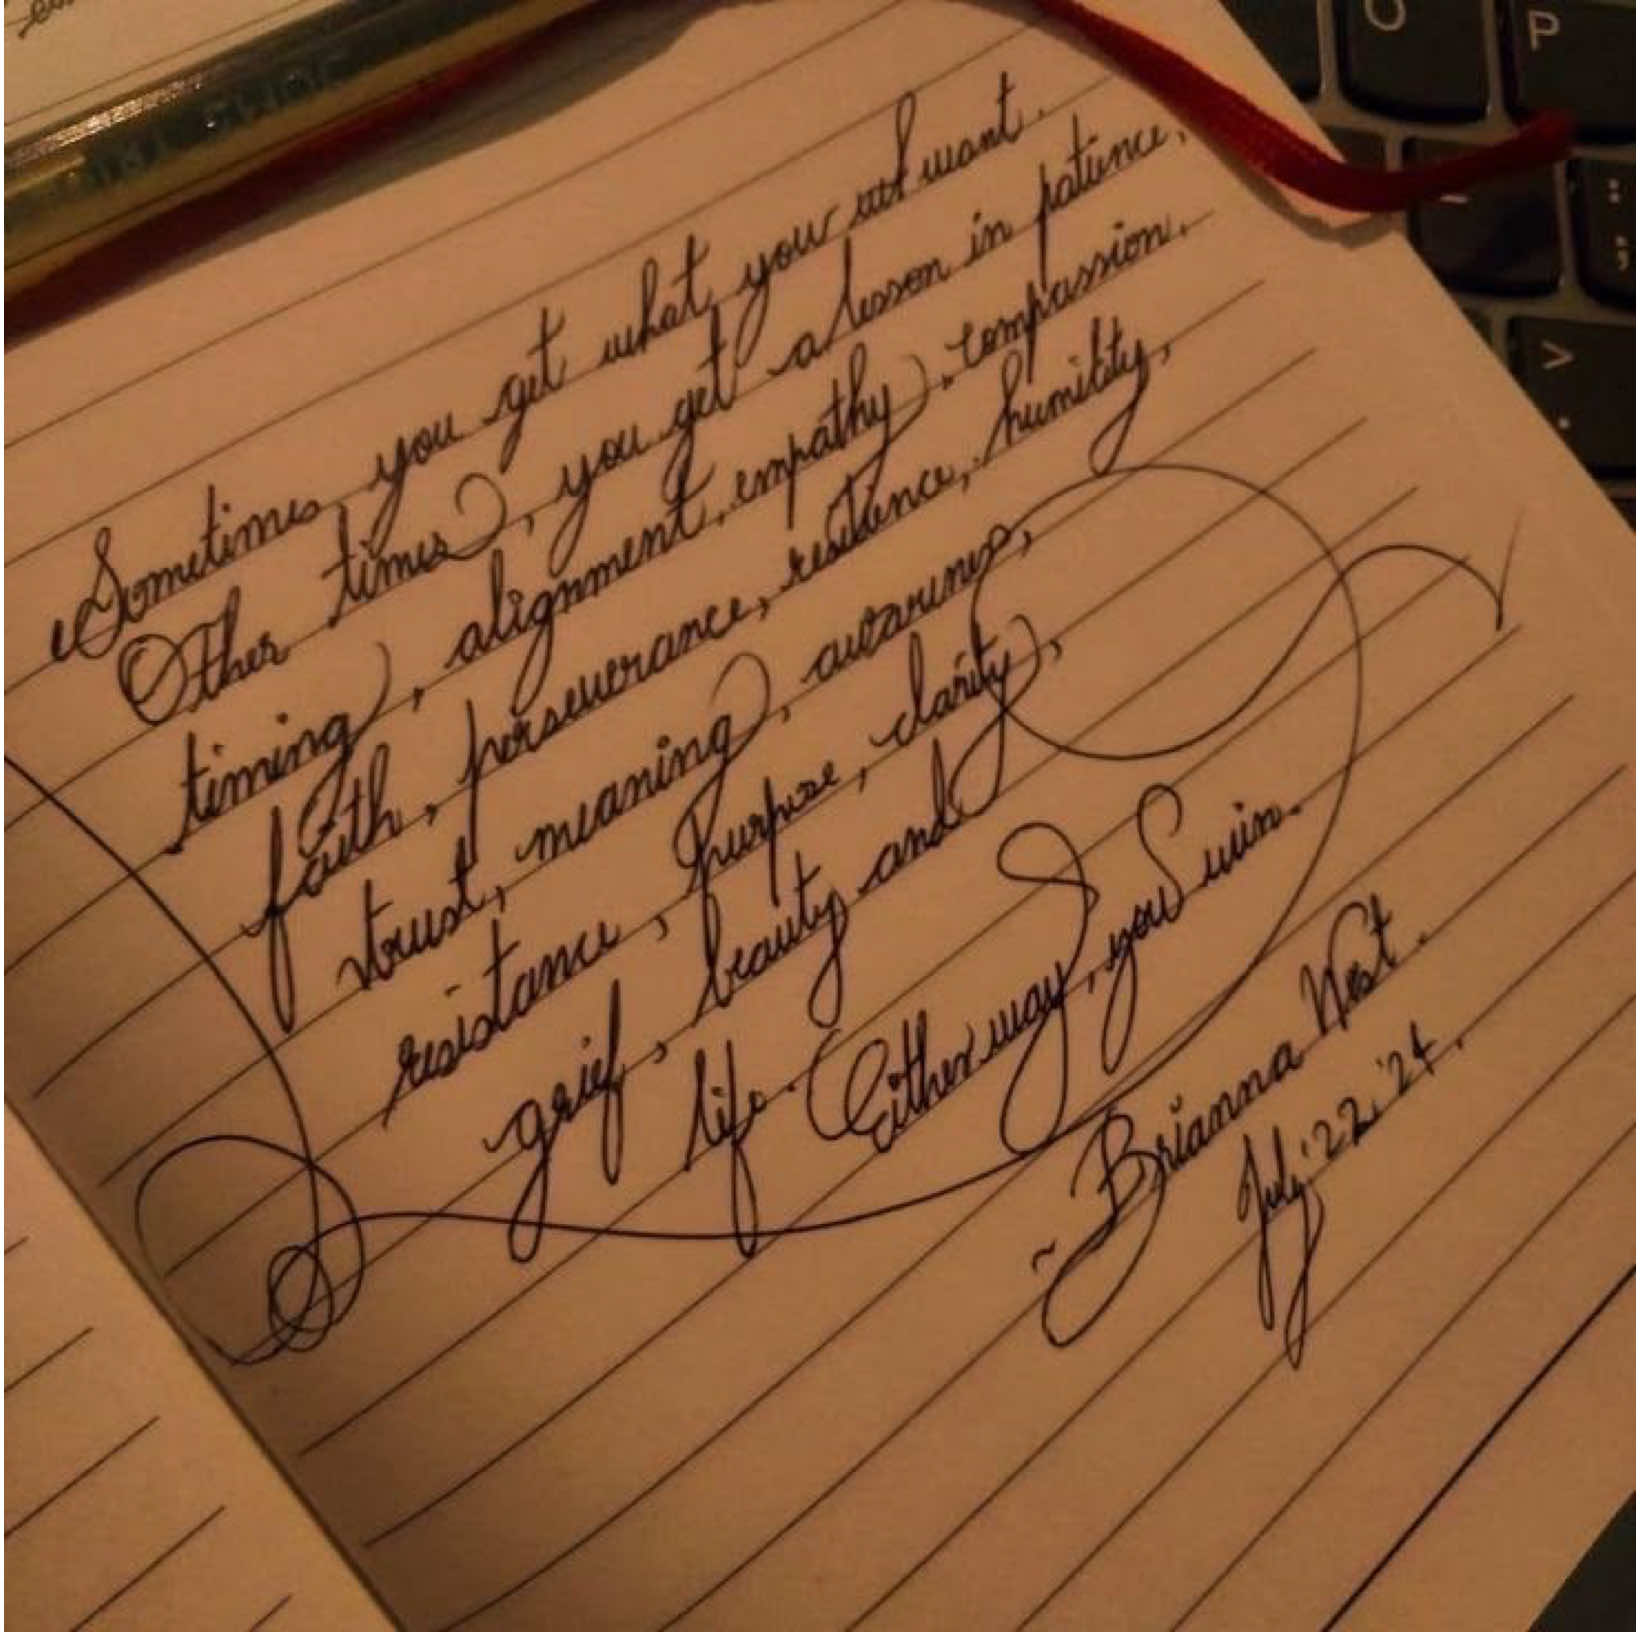 Sometimes you get what you want.
Other times, you get a lesson in patience,
timing, alignment, empathy, compassion,
faith, perseverance, resilience, humility,
trust, meaning, awareness,
resistance, purpose, clarity,
grief, beauty and
life. Either way, you win.
~Brianna West.
July '22 '24.
O
P
>